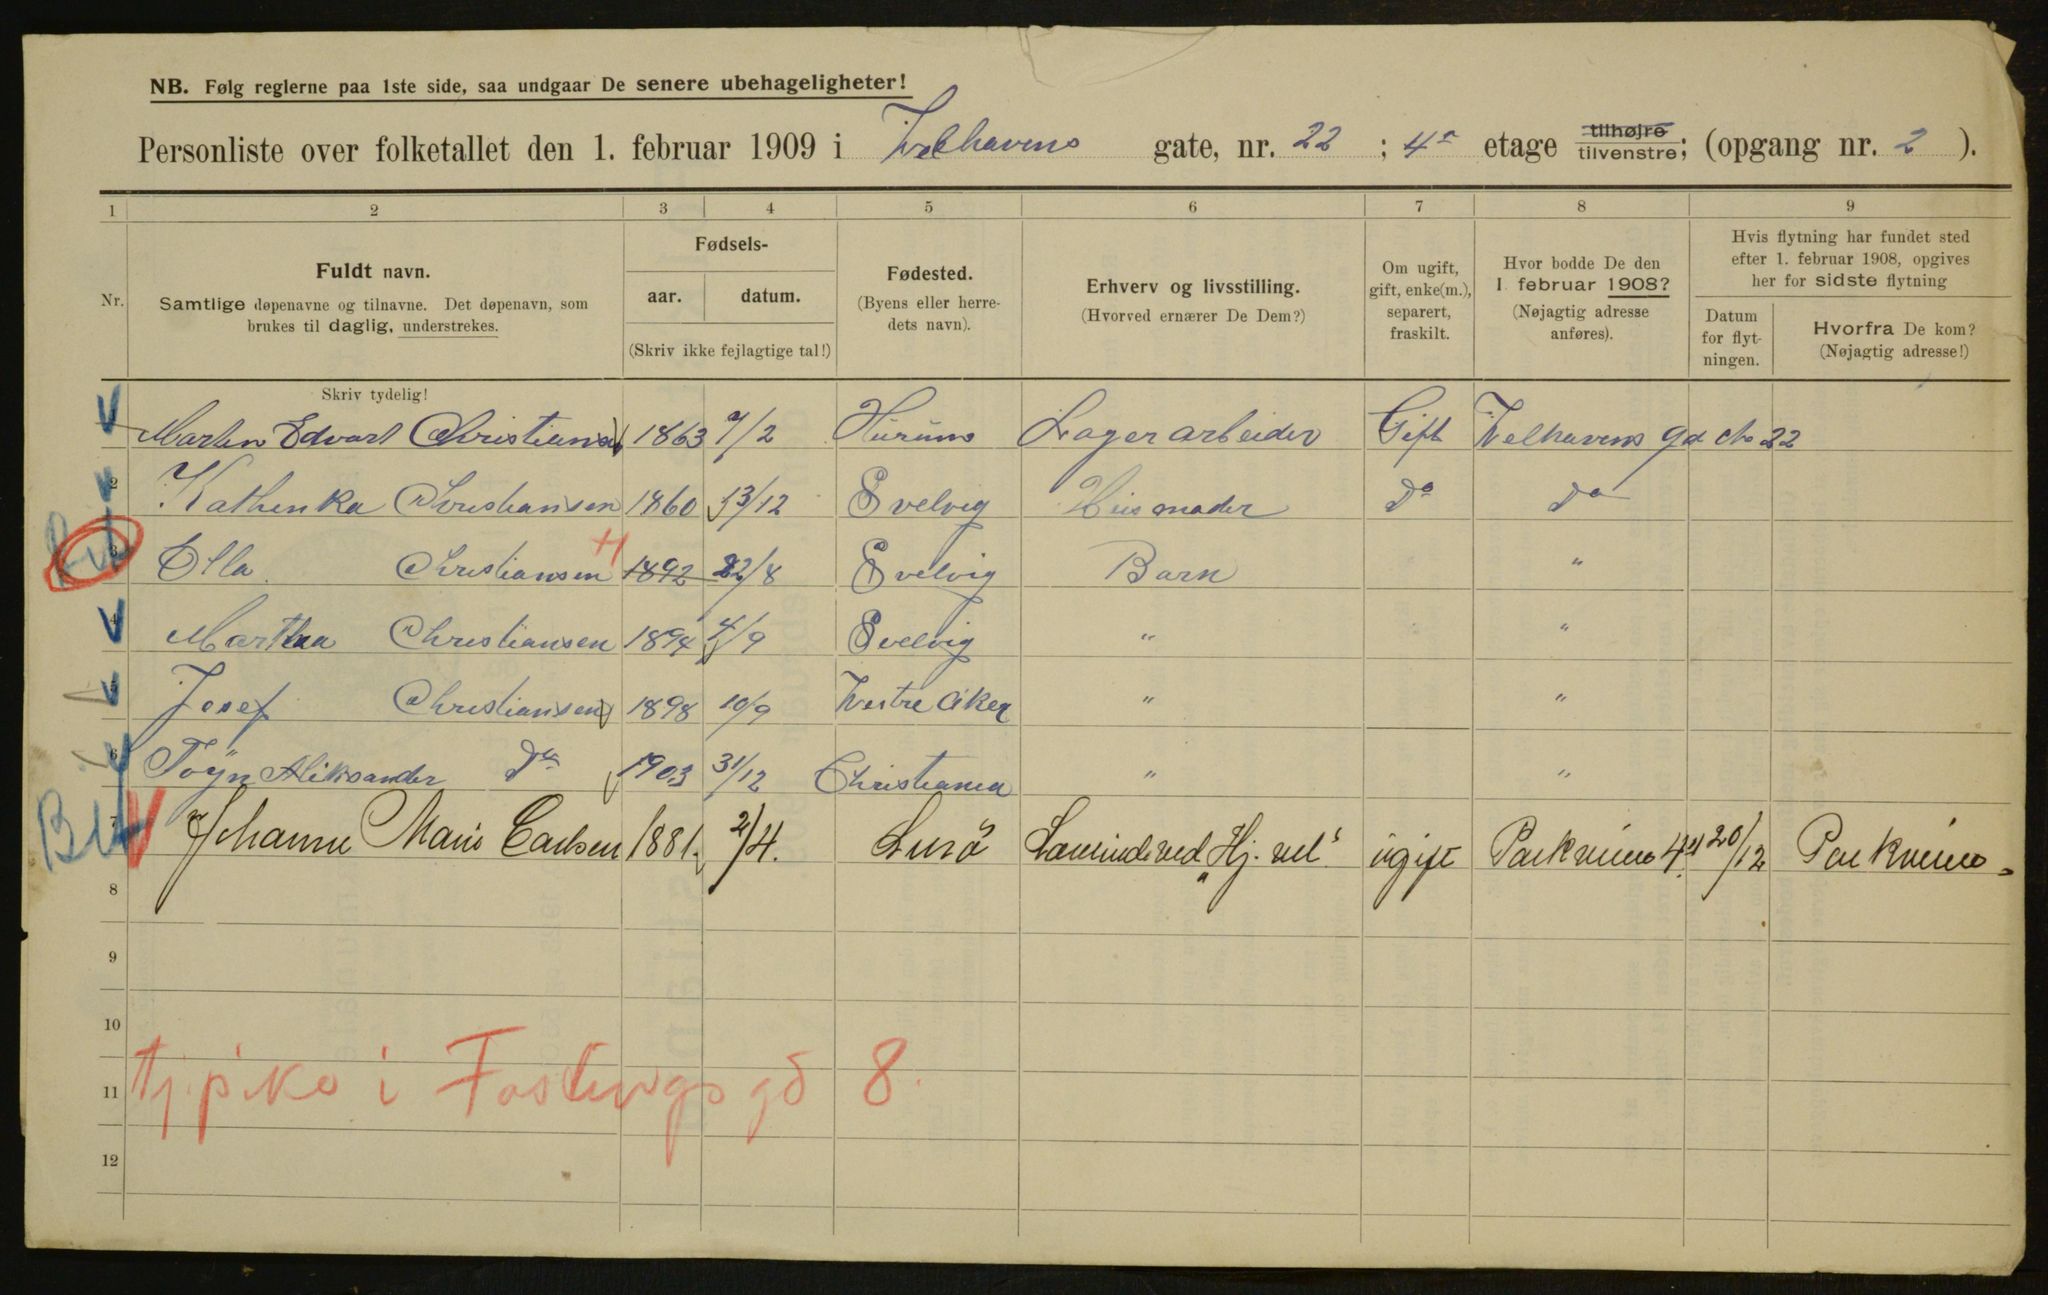 NB. Følg reglerne paa 1ste side, saa undgaar De senere ubehageligheter!
Personliste over folketallet den 1. februar 1909 i Welhavens gate, nr. 22 ; 4de etage tilhøjre tilvenstre; (opgang nr. 2 ).
1 2 3 4 5 6 7 8 9
Nr. Fuldt navn. Samtlige døpenavne og tilnavne. Det døpenavn, som brukes til daglig, understrekes.
Fødsels- aar. datum. (Skriv ikke fejlagtige tal!)
Fødested. (Byens eller herredets navn).
Erhverv og livsstilling. (Hvorved ernærer De Dem?)
Om ugift, gift, enke(m.), separert, fraskilt.
Hvor bodde De den 1 februar 1908? (Nøjagtig adresse anføres).
Hvis flytning har fundet sted efter 1. februar 1908, opgives her for sidste flytning
Datum for flytningen. Hvorfra De kom? (Nøjagtig adresse!)
Skriv tydelig!
Martin Edvart Christiansen 1863 7/2 Hurum Lagerarbeider Gift Welhavens gd No 22
2 Kathinka Christiansen 1860 13/12 Svelvig Husmoder Do Do
3 Ella Christiansen 1892 22/8 Svelvig Barn "
4 Martha Christiansen 1894 4/9 Svelvig " "
5 Josef Christiansen 1898 10/9 Vestre Aker " "
6 Aliksander Do 1903 31/12 Christiania " "
7 Johanne Marie Carlsen 1881 2/4. Lurö ved "Hj. vel" ugift Parkveien 4 20/12 Parkveien
8
9
10
11
12
Tj.pike i Fastingsgd 8.